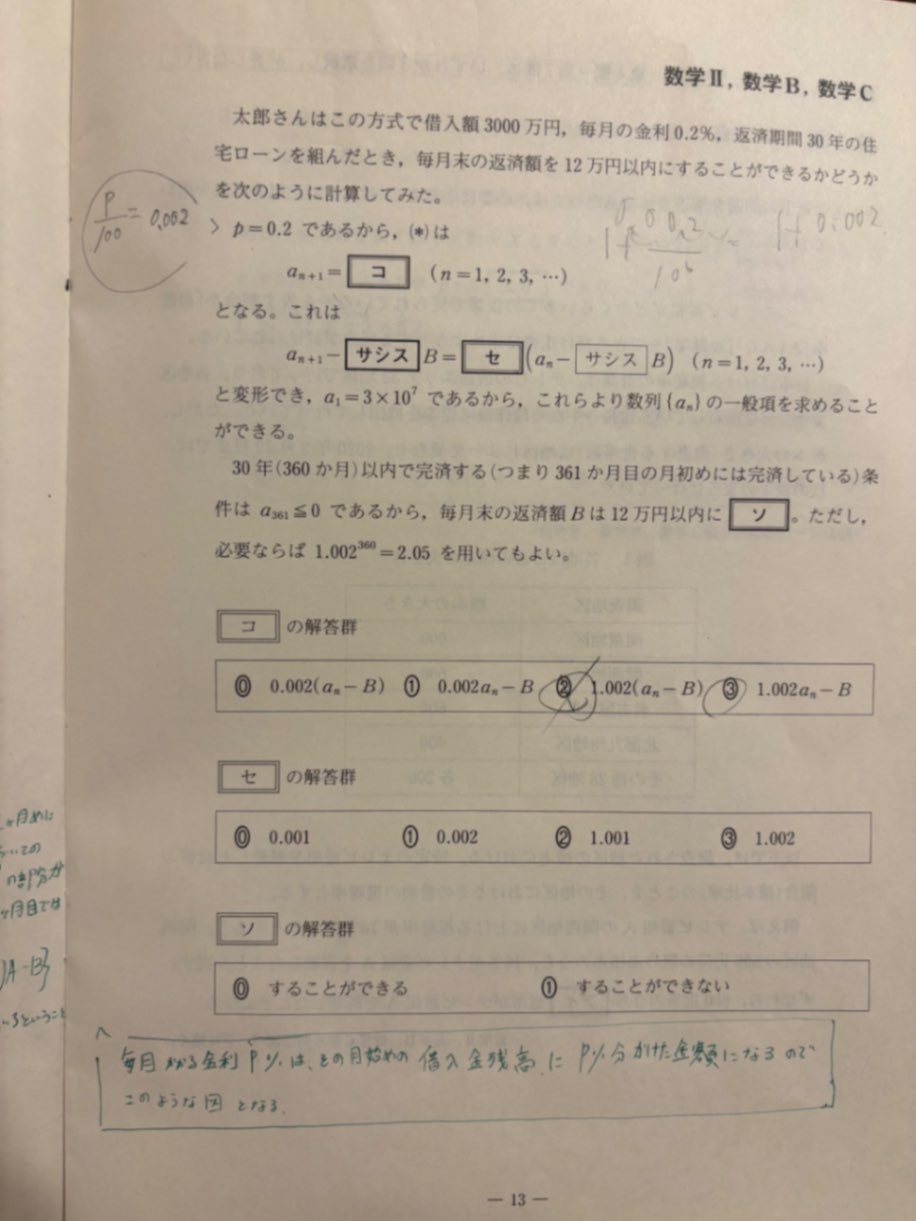 数学Ⅱ,数学B,数学C
太郎さんはこの方式で借入額3000万円,毎月の金利0.2%,返済期間30年の住
宅ローンを組んだとき,毎月末の返済額を12万円以内にすることができるかどうか
を次のように計算してみた。
p/100 = 0.002
p=0.2 であるから,(*)は
1+ 0.2/100 1+0.002
aₙ₊₁= コ (n=1, 2, 3, …)
となる。これは
aₙ₊₁− サシス B= セ (aₙ− サシス B) (n=1, 2, 3, …)
と変形でき,a₁=3×10⁷ であるから,これらより数列{aₙ}の一般項を求めること
ができる。
30年(360か月)以内で完済する(つまり361か月目の月初めには完済している)条
件は a₃₆₁≦0 であるから,毎月末の返済額Bは12万円以内に ソ 。ただし,
必要ならば 1.002³⁶⁰=2.05 を用いてもよい。
コ の解答群
⓪ 0.002(aₙ−B) ① 0.002aₙ−B ② 1.002(aₙ−B) ③ 1.002aₙ−B
セ の解答群
⓪ 0.001 ① 0.002 ② 1.001 ③ 1.002
ソ の解答群
⓪ することができる ① することができない
月めに
いての
の部分が
ヶ月目では
)A-B}
いるということ
毎月かかる金利P%は、その月始めの借入金残高にP%分かけた金額になるので
このような図となる.
— 13 —